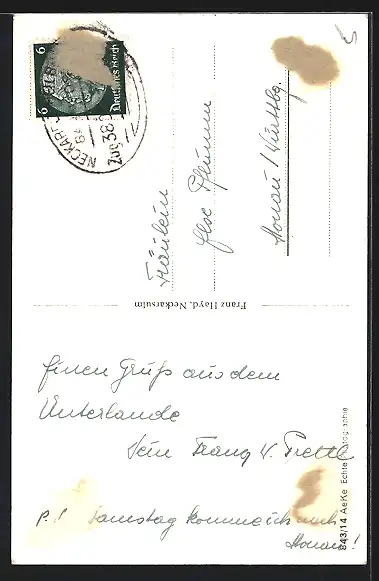 6 6
Deutsches Reich
NECKARE
Zug 38
Fräulein
Honau / Württbg.
Franz Hayd, Neckarsulm
Einen Gruß aus dem
Unterlande
Dein Franz
P.S Samstag komme ich nach
Honau!
843/14 AeKe Echte Photographie